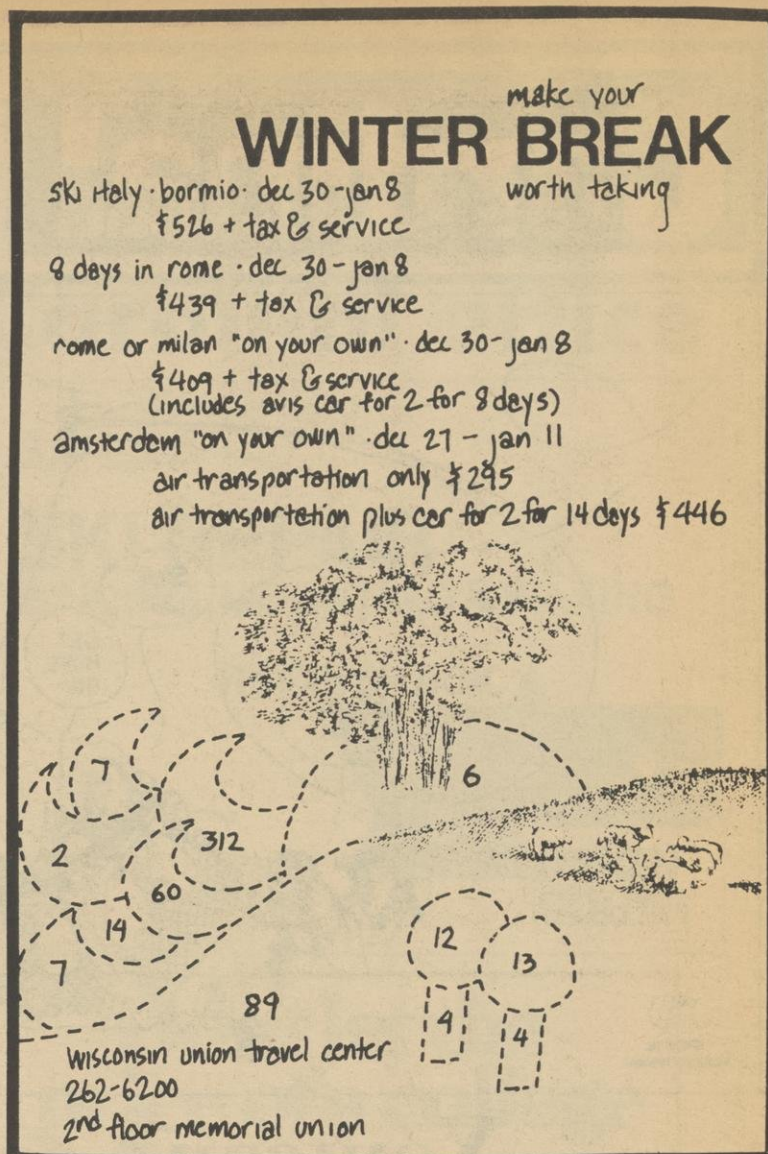 make your
WINTER BREAK
worth taking
ski italy · bormio · dec 30 - jan 8
$526 + tax & service
8 days in rome · dec 30 - jan 8
$439 + tax & service
rome or milan "on your own" · dec 30 - jan 8
$409 + tax & service
(includes avis car for 2 for 8 days)
amsterdam "on your own" · dec 27 - jan 11
air transportation only $295
air transportation plus car for 2 for 14 days $446
6
7
2
312
60
14
12
13
7
4
4
89
wisconsin union travel center
262-6200
2nd floor memorial union